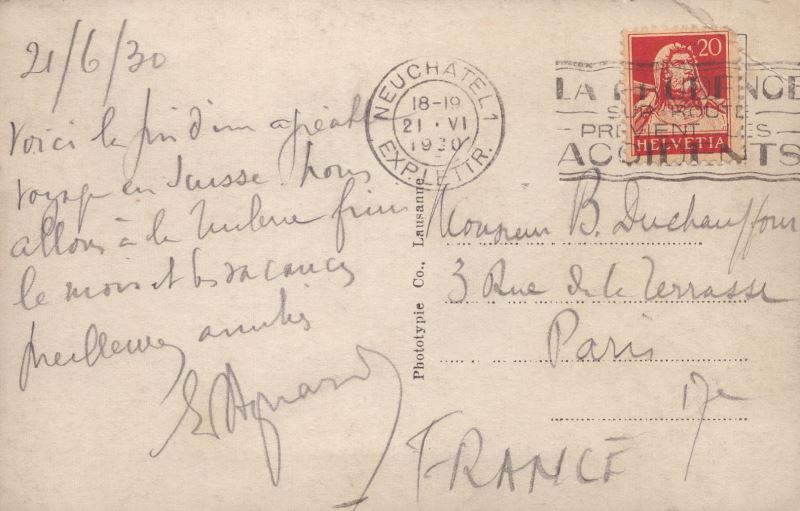 21/6/30
Voici la fin d'un agréable
voyage en Suisse nous
allons à la finir
le mois et les vacances
meilleures amitiés
NEUCHATEL 1
18-19
21 · VI
1930
EXP. LETTR.
20
HELVETIA
LA PRUDENCE
SUR ROUTE
PREVIENT LES
ACCIDENTS
Phototypie Co., Lausanne
Monsieur B. Duchauffour
3 Rue de la Terrasse
Paris
17e
FRANCE